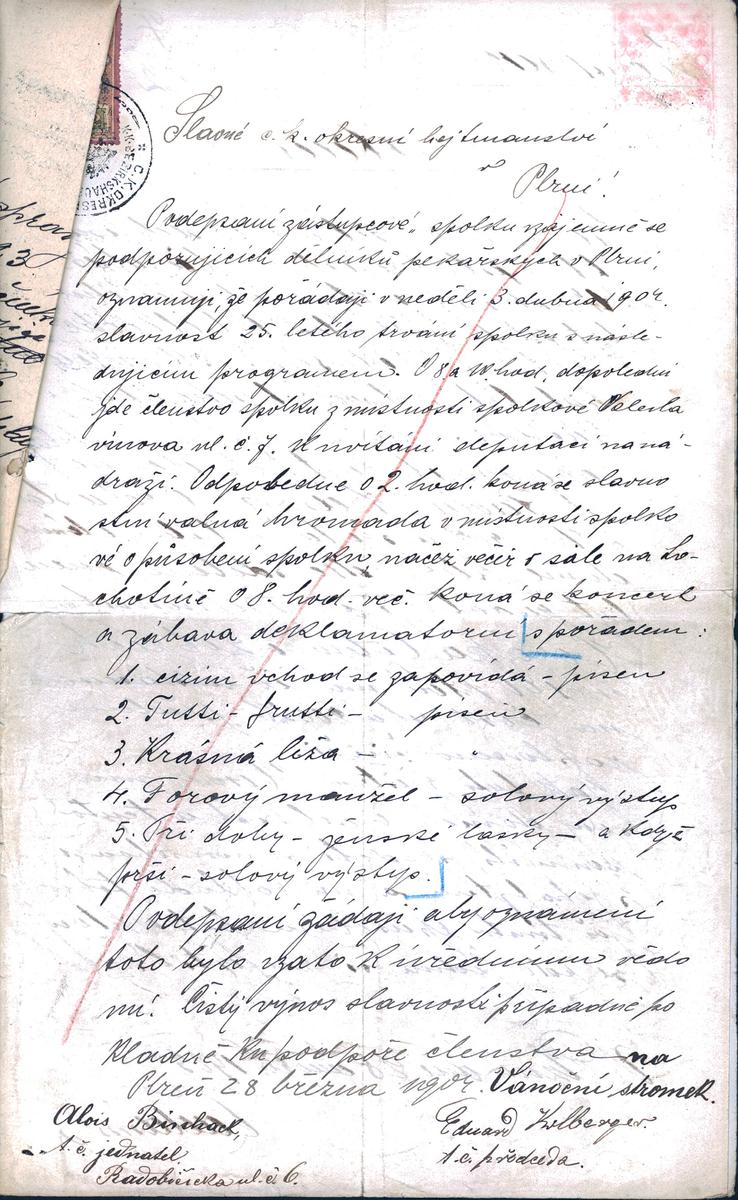 Slavné c. k. okresní hejtmanství
v Plzni!
Podepsaní zástupcové „spolku vzájemně se
podporujících dělníků pekařských v Plzni,
oznamují, že pořádají v neděli 3. dubna 1904.
slavnost 25. letého trvání spolku s násle-
dujícím programem. O 8 a 10 hod. dopolední
jde členstvo spolku z místnosti spolkové
vinova ul. č. 7. K uvítání deputací na ná-
draží. Odpoledne o 2. hod. koná se slavno
stní valná hromada v místnosti spolko
vé o působení spolku, načež večer v sále na Lo-
chotíně o 8. hod. več. koná se koncert
a zábava deklamatorní s pořadem:
1. cizím vchod se zapovídá - píseň
2. Tutti - frutti - píseň
3. Krásná liza - "
4. Forový manžel - solový výstup
5. Tři doby - ženské lásky - a Když
prší - solový výstup.
Podepsaní žádají aby oznámení
toto bylo vzato k úřednímu vědo
mí. Čistý výnos slavnosti případně po
kladně ku podpoře členstva na
Plzeň 28 března 1904. Vánoční stromek.
Alois
t. č. jednatel
Radobičicka ul. č. 6.
Eduard Kolberger.
t. č. předseda.
C. K. OKRES
K. K. BEZIRKSHAU